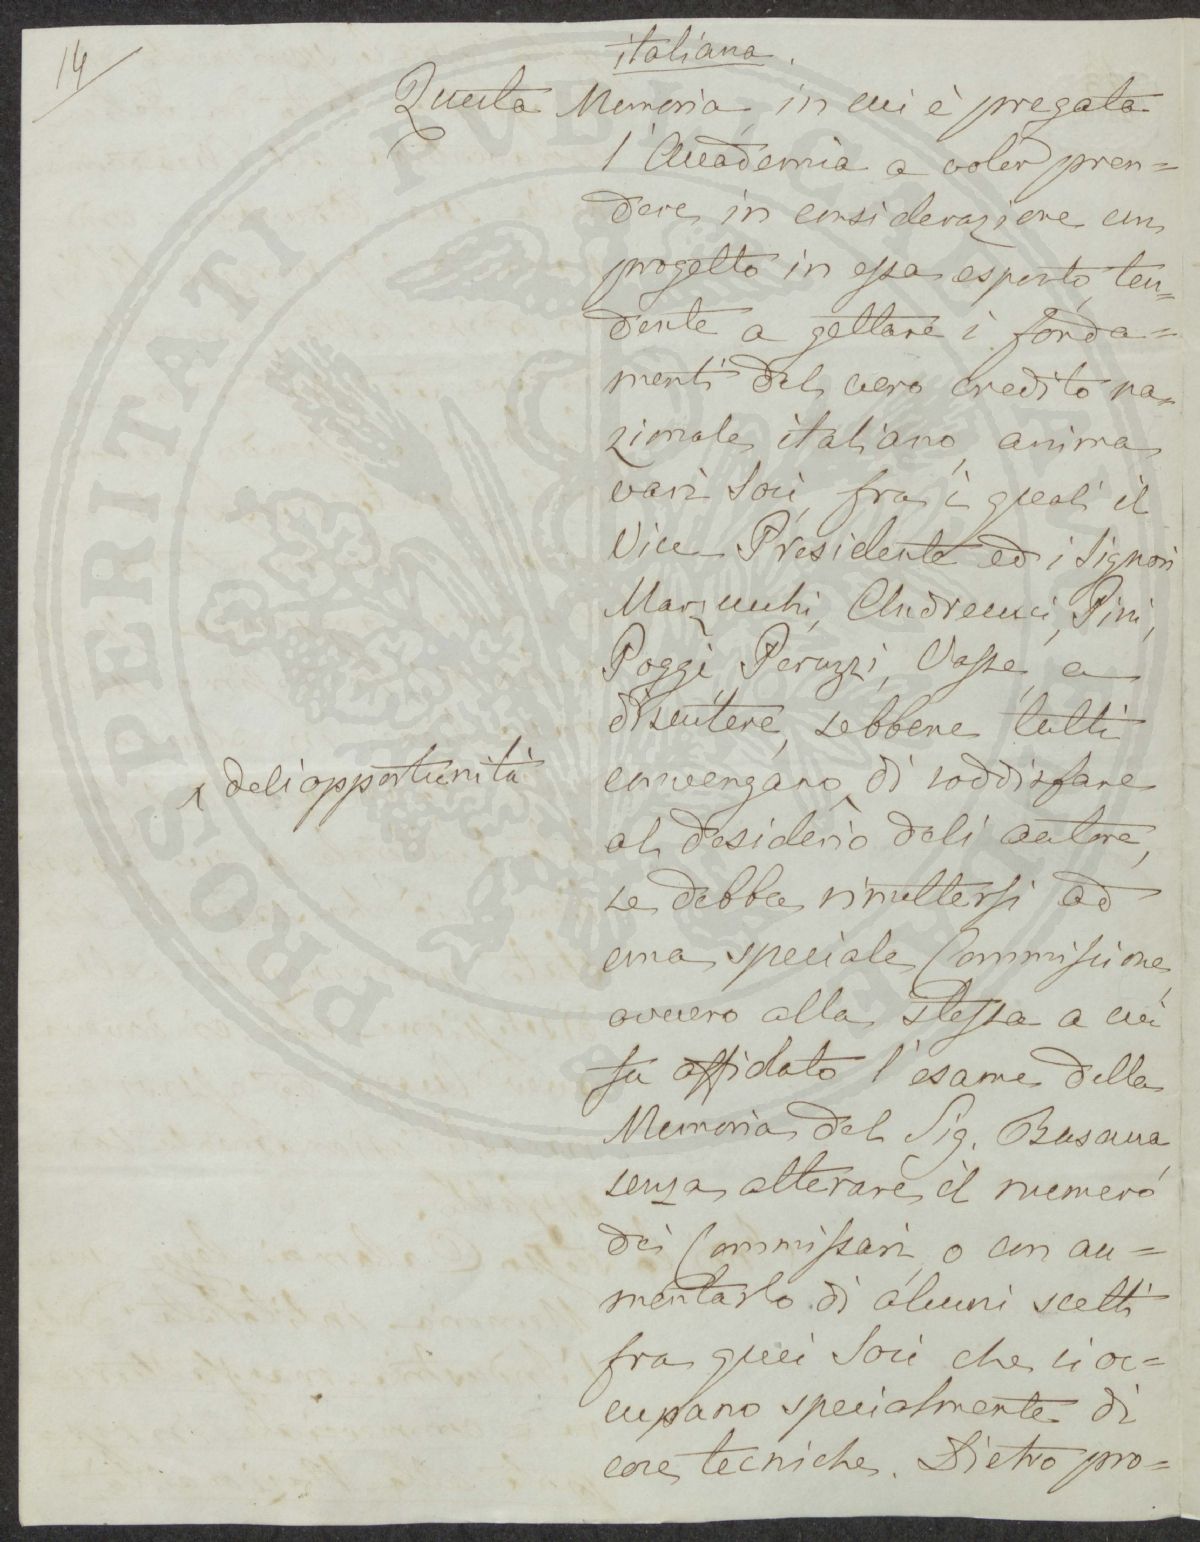 14
italiana.
Questa Memoria in cui è pregata
l'Accademia a voler pren=
dere in considerazione un
progetto in essa esposto, ten=
dente a gettare i fonda=
menti del vero credito na=
zionale italiano, anima
varj Socj, fra i quali il
Vice Presidente ed i Signori
Marzucchi, Andreucci, Pini,
Poggi, Peruzzi, Vasse, a
discutere, sebbene tutti
convengano di soddisfare
^ dell'opportunità
al desiderio dell'autore,
se debba rimettersi ad
una speciale Commissione,
ovvero alla stessa a cui
fu affidato l'esame della
Memoria del Sig. Busacca
senza alterare il numero
dei Commissarj, o con au=
mentarlo di alcuni scelti
fra quei Socj che si oc=
cupano specialmente di
cose tecniche. Dietro pro=
PROSPERITATI PVBLICAE